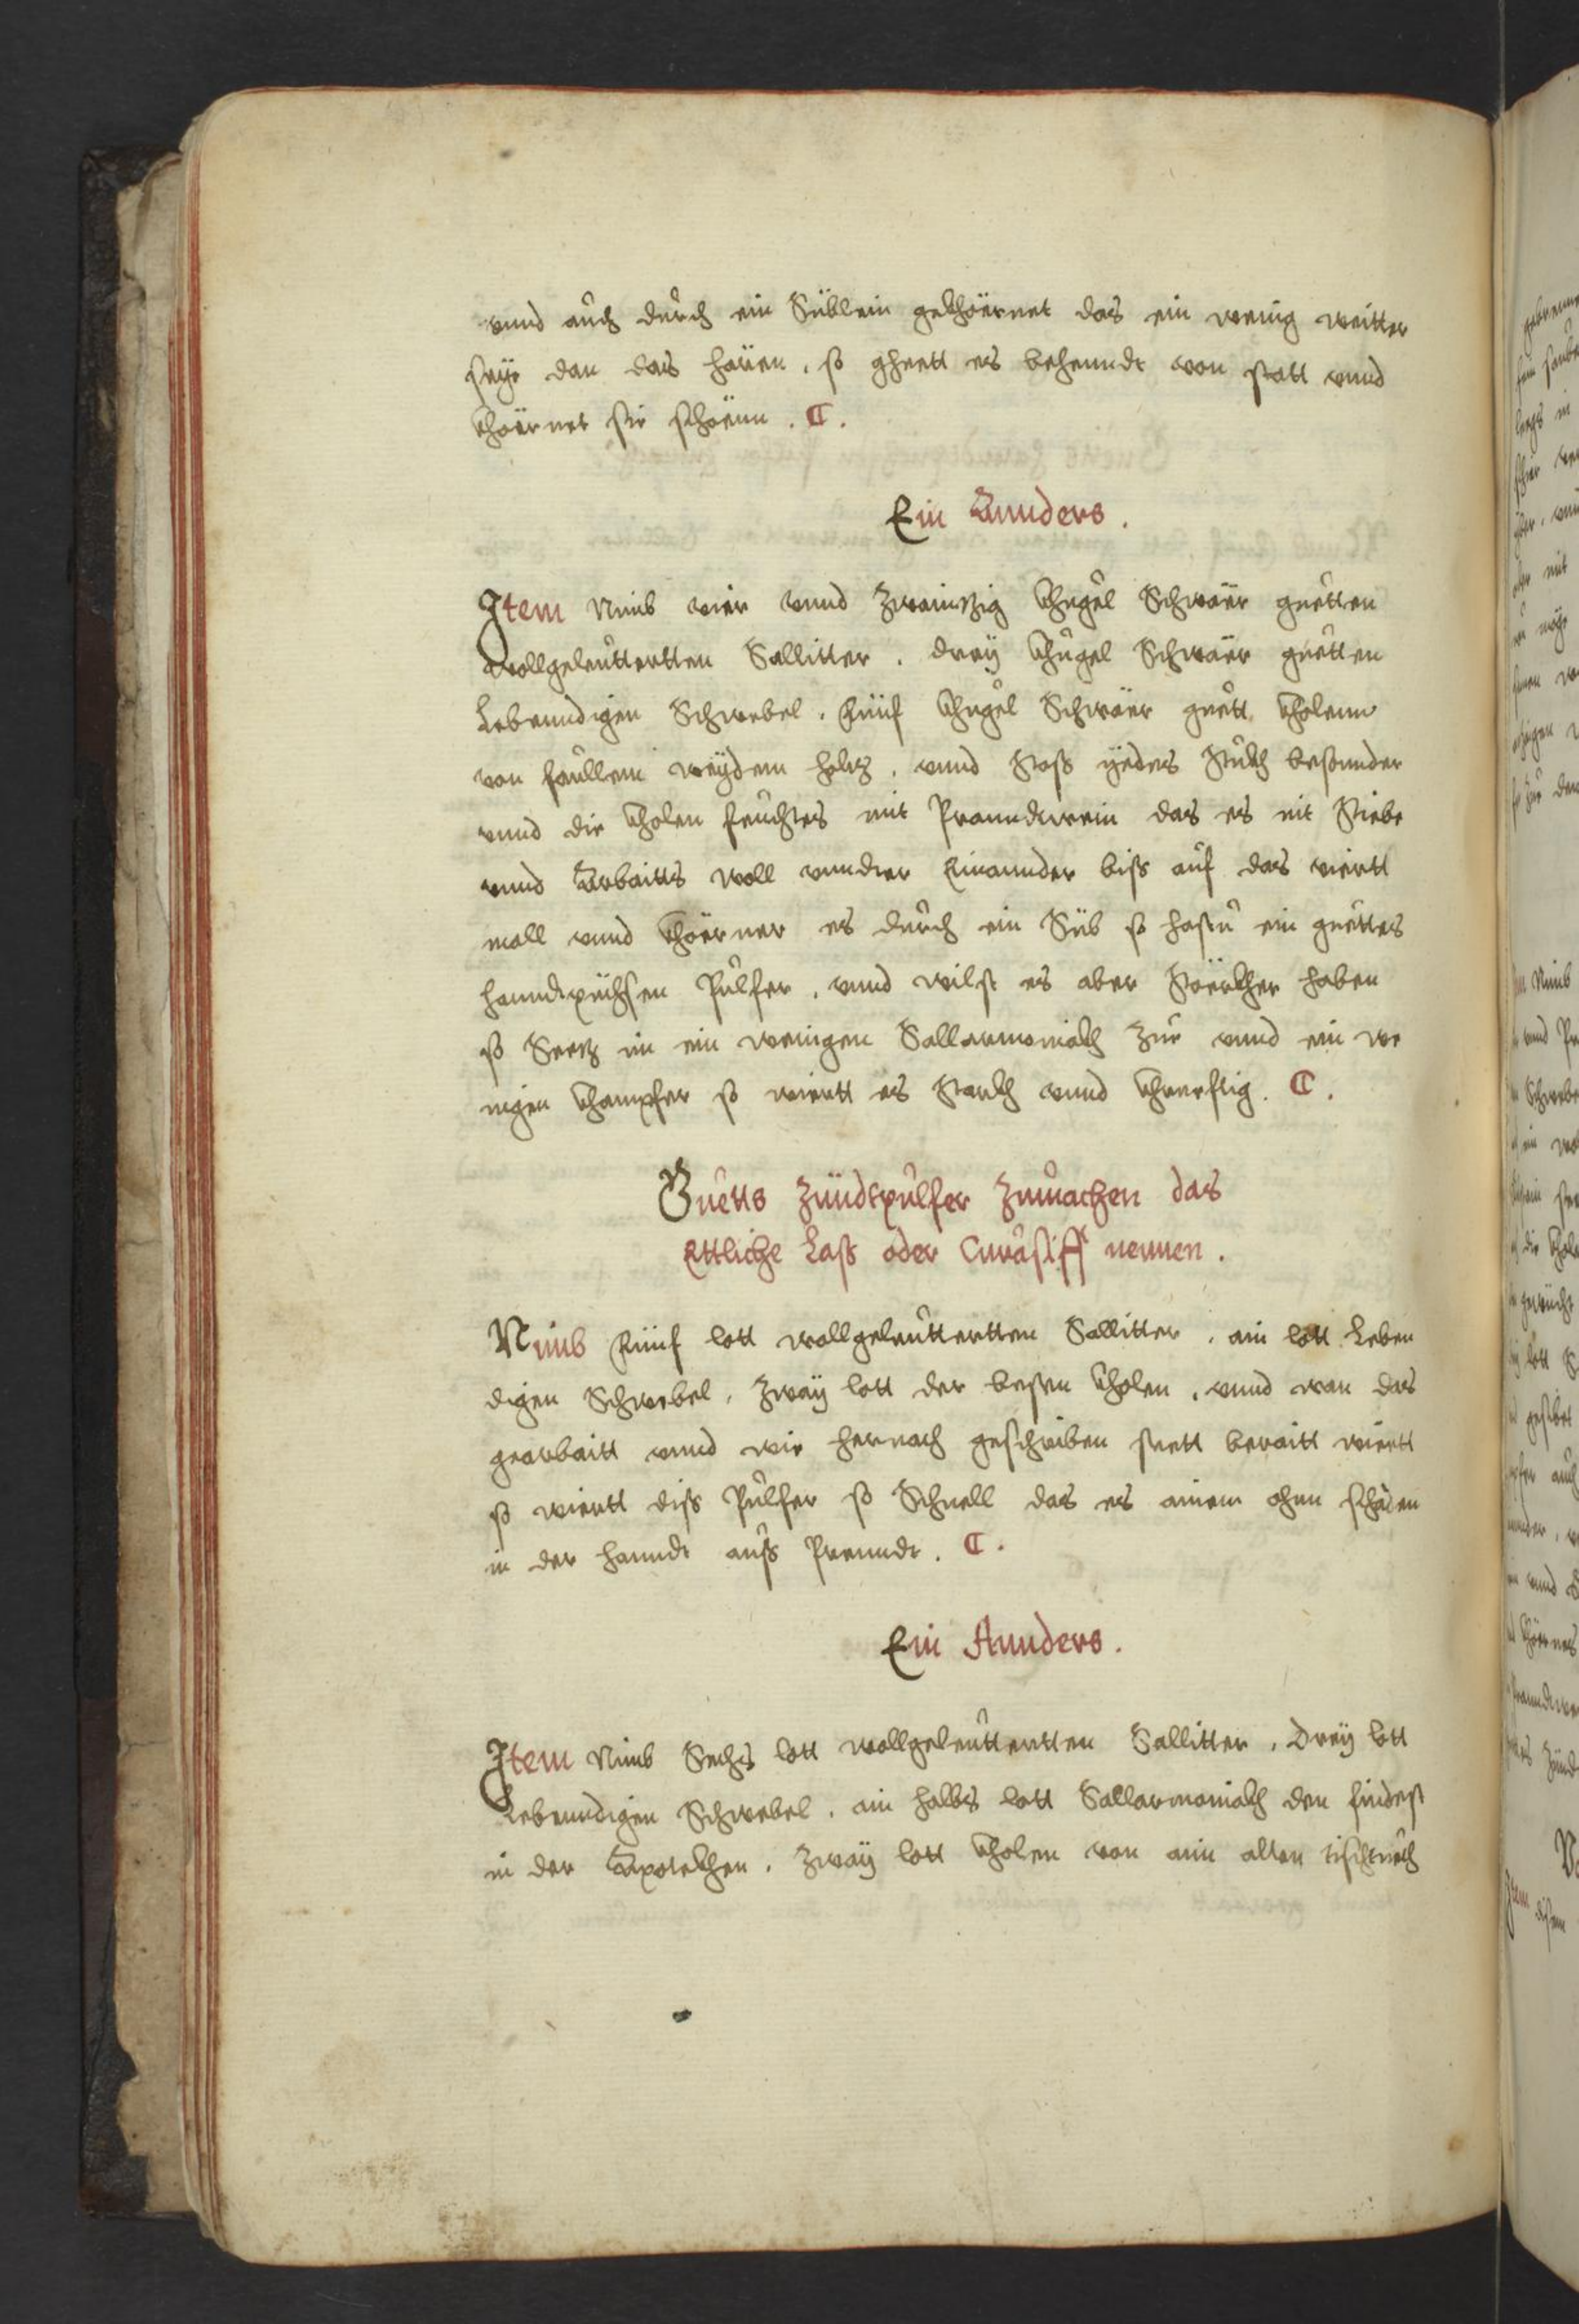 vnnd auch durch ein Süblein gekhöernet das ein wenig weitter
seye dan das hären, so gheett es behenndt von statt vnnd
khöernet sie schöenn. C.
Ein Annders.
Item Nimb vier vnnd zwaintzig khugel Schwäer guetten
wollgeleuttertten Sallitter. drey khugel Schwäer guetten
Lebenndigen Schwebel. fünf khugel Schwäer guett kholenn
von faullem weydem holtz. vnnd Stoss yedes Stukh besonnder
vnnd die kholen feuchtes mit Pranndtwein das es nit Stiebe
vnnd Arbaitts woll vnnder Einannder biss auf das viertt
mall vnnd khöerner es durch ein Süb so hastu ein guettes
hanndtpüchsen Pulfer. vnnd wilst es aber Stöerkher haben
so Seetz im ein wenigen Sallarmoniakh zue vnnd ein we
nigen khampfer so wiertt es Starkh vnnd khreftig. C.
Guetts Zündtpulfer Zumachen das
Ettliche Lass oder Curasiff nennen.
Nimb fünf lott wollgeleuttertten Sallitter. ain lott Leben
digen Schwebel. zway lott der besten kholen. vnnd wan das
gearbaitt vnnd wie hernach geschriben steett beraitt wiertt
so wiertt diss Pulfer so Schnell das es ainem ohn schaden
in der hanndt auss Prenndt. C.
Ein Annders.
Item Nimb Sechs lott wollgeleuttertten Sallitter. Drey lott
Lebenndigen Schwebel. ain halbs lott Sallarmoniakh den findest
in der Apotekhen. zway lott kholen von aim alten tischtuech